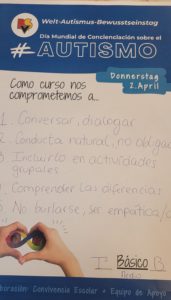 Welt-Autismus-Bewusstseinstag
Día Mundial de Concienciación sobre el
# AUTISMO
Donnerstag
2. April
Como curso nos
comprometemos a...
1. Conversar, dialogar
2. Conducta natural, no
3. Incluirlo en actividades
grupales
4. Comprender las diferencias
5. No burlarse, ser empático/a
I° Básico B
Convivencia Escolar + Equipo de Apoyo